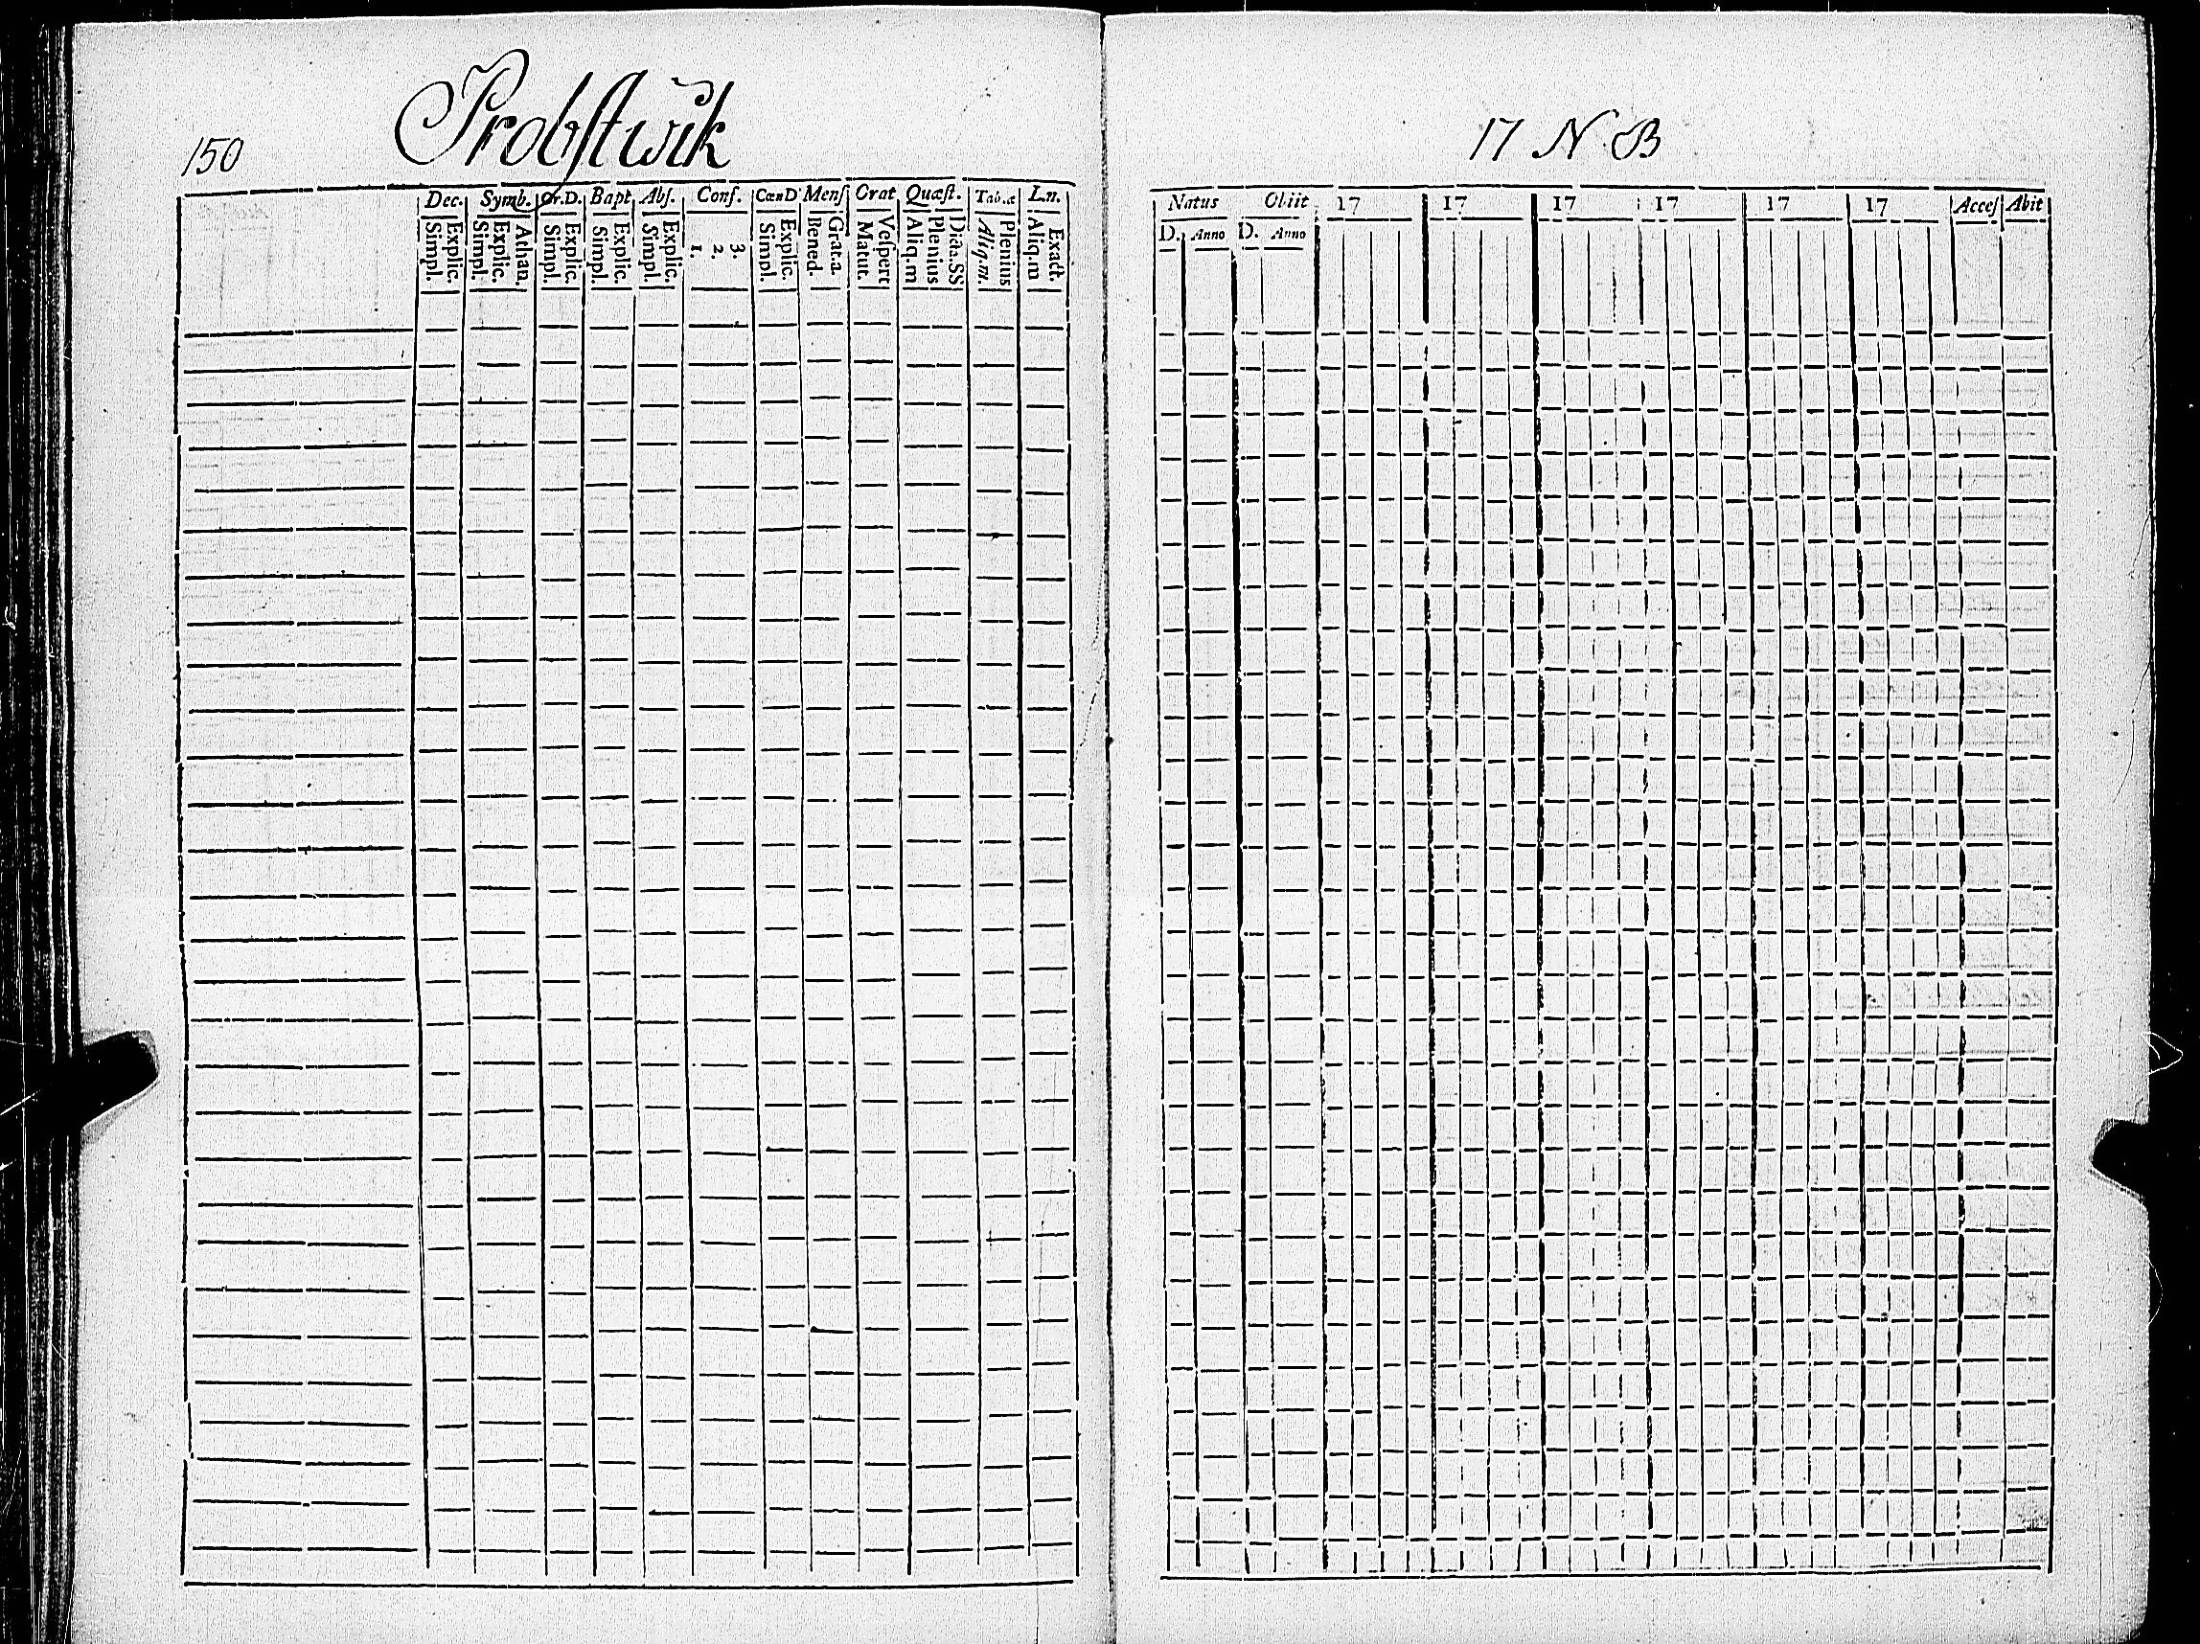 150 Probstwik
Dec. Symb. Or.D. Bapt Abſ. Conf. CœnD Menſ Orat Quæſt. Tab.æ L.n.
Explic. Simpl. Athan. Explic. Simpl. Explic. Simpl. Explic. Simpl. Explic. Simpl. 3. 2. 1. Explic. Simpl. Grat.a. Bened. Veſpert Matut. Dicta.SS Plenius Aliq.m Plenius Aliq.m. Exact. Aliq.m
17 N B
Natus Obiit 17 17 17 17 17 17 Acceſ Abit
D. Anno D. Anno